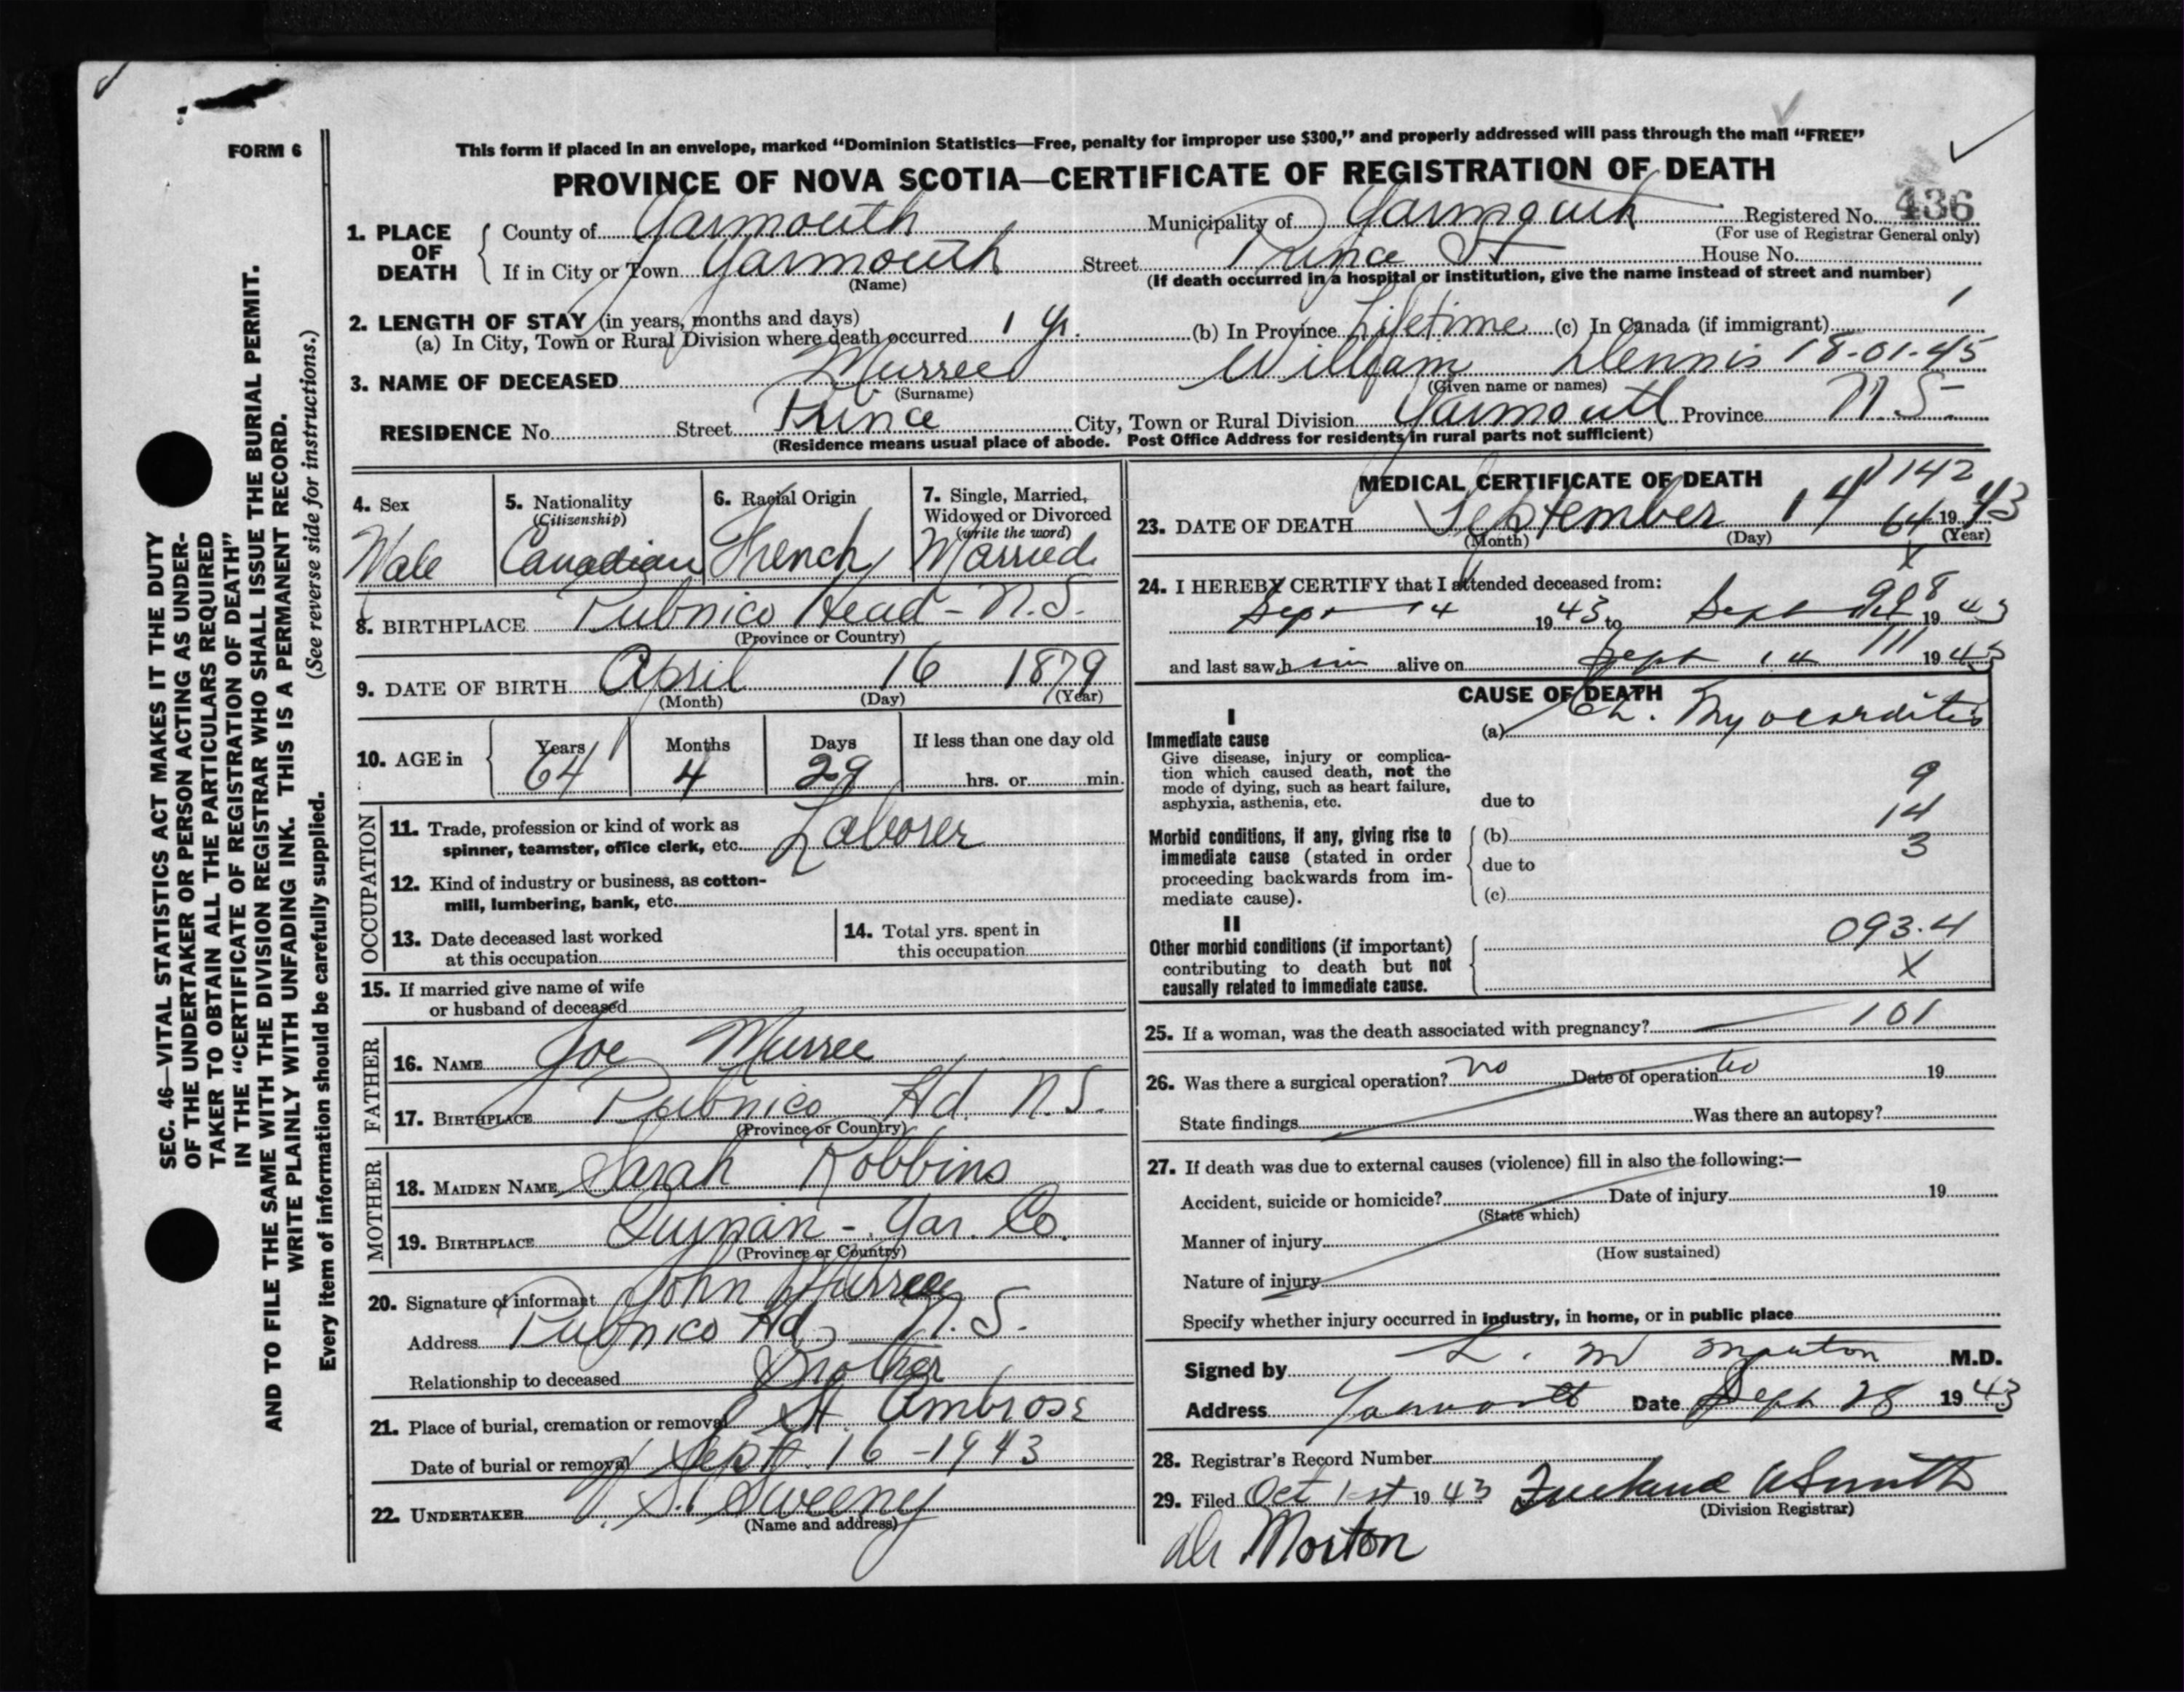 FORM 6
This form if placed in an envelope, marked "Dominion Statistics—Free, penalty for improper use $300," and properly addressed will pass through the mail "FREE"
PROVINCE OF NOVA SCOTIA—CERTIFICATE OF REGISTRATION OF DEATH
436
1. PLACE OF DEATH County of Yarmouth Municipality of Yarmouth Registered No.
(For use of Registrar General only)
If in City or Town Yarmouth Street Prince St House No.
(Name) (If death occurred in a hospital or institution, give the name instead of street and number)
2. LENGTH OF STAY (in years, months and days)
(a) In City, Town or Rural Division where death occurred 1 yr. (b) In Province Lifetime (c) In Canada (if immigrant)
3. NAME OF DECEASED Murree William Dennis 18-01-45
(Surname) (Given name or names)
RESIDENCE No. Street Prince City, Town or Rural Division Yarmouth Province N.S.
(Residence means usual place of abode. Post Office Address for residents in rural parts not sufficient)
4. Sex Male
5. Nationality (Citizenship) Canadian
6. Racial Origin French
7. Single, Married, Widowed or Divorced (write the word) Married
8. BIRTHPLACE Pubnico Head - N.S.
(Province or Country)
9. DATE OF BIRTH April 16 1879
(Month) (Day) (Year)
10. AGE in Years 64 Months 4 Days 29 If less than one day old hrs. or min.
OCCUPATION
11. Trade, profession or kind of work as spinner, teamster, office clerk, etc. Laborer
12. Kind of industry or business, as cotton-mill, lumbering, bank, etc.
13. Date deceased last worked at this occupation
14. Total yrs. spent in this occupation
15. If married give name of wife or husband of deceased
FATHER
16. NAME Joe Murree
17. BIRTHPLACE Pubnico Hd. N.S.
(Province or Country)
MOTHER
18. MAIDEN NAME Sarah Robbins
19. BIRTHPLACE Quinan - Yar. Co.
(Province or Country)
20. Signature of informant John Murree
Address Pubnico Hd. N.S.
Relationship to deceased Brother
21. Place of burial, cremation or removal St. Ambrose
Date of burial or removal Sept. 16 - 1943
22. UNDERTAKER V. S. Sweeny
(Name and address)
MEDICAL CERTIFICATE OF DEATH 1142
23. DATE OF DEATH September 14 64 1943
(Month) (Day) (Year)
X
24. I HEREBY CERTIFY that I attended deceased from:
Sept 14 1943 to Sept 1943
908
and last saw him alive on Sept 14 111 1943
CAUSE OF DEATH
I
Immediate cause
Give disease, injury or complication which caused death, not the mode of dying, such as heart failure, asphyxia, asthenia, etc.
(a) Ch. Myocarditis
due to 9
14
Morbid conditions, if any, giving rise to immediate cause (stated in order proceeding backwards from immediate cause).
(b) 3
due to
(c)
II
Other morbid conditions (if important) contributing to death but not causally related to immediate cause.
093.4
X
25. If a woman, was the death associated with pregnancy? 101
26. Was there a surgical operation? no Date of operation 19
State findings Was there an autopsy?
27. If death was due to external causes (violence) fill in also the following:—
Accident, suicide or homicide? Date of injury 19
(State which)
Manner of injury
(How sustained)
Nature of injury
Specify whether injury occurred in industry, in home, or in public place
Signed by L. M Morton M.D.
Address Yarmouth Date Sept 28 1943
28. Registrar's Record Number
29. Filed Oct 1st 1943 Smith
(Division Registrar)
Dr Morton
SEC. 46—VITAL STATISTICS ACT MAKES IT THE DUTY
OF THE UNDERTAKER OR PERSON ACTING AS UNDER-
TAKER TO OBTAIN ALL THE PARTICULARS REQUIRED
IN THE "CERTIFICATE OF REGISTRATION OF DEATH"
AND TO FILE THE SAME WITH THE DIVISION REGISTRAR WHO SHALL ISSUE THE BURIAL PERMIT.
WRITE PLAINLY WITH UNFADING INK. THIS IS A PERMANENT RECORD.
Every item of information should be carefully supplied. (See reverse side for instructions.)